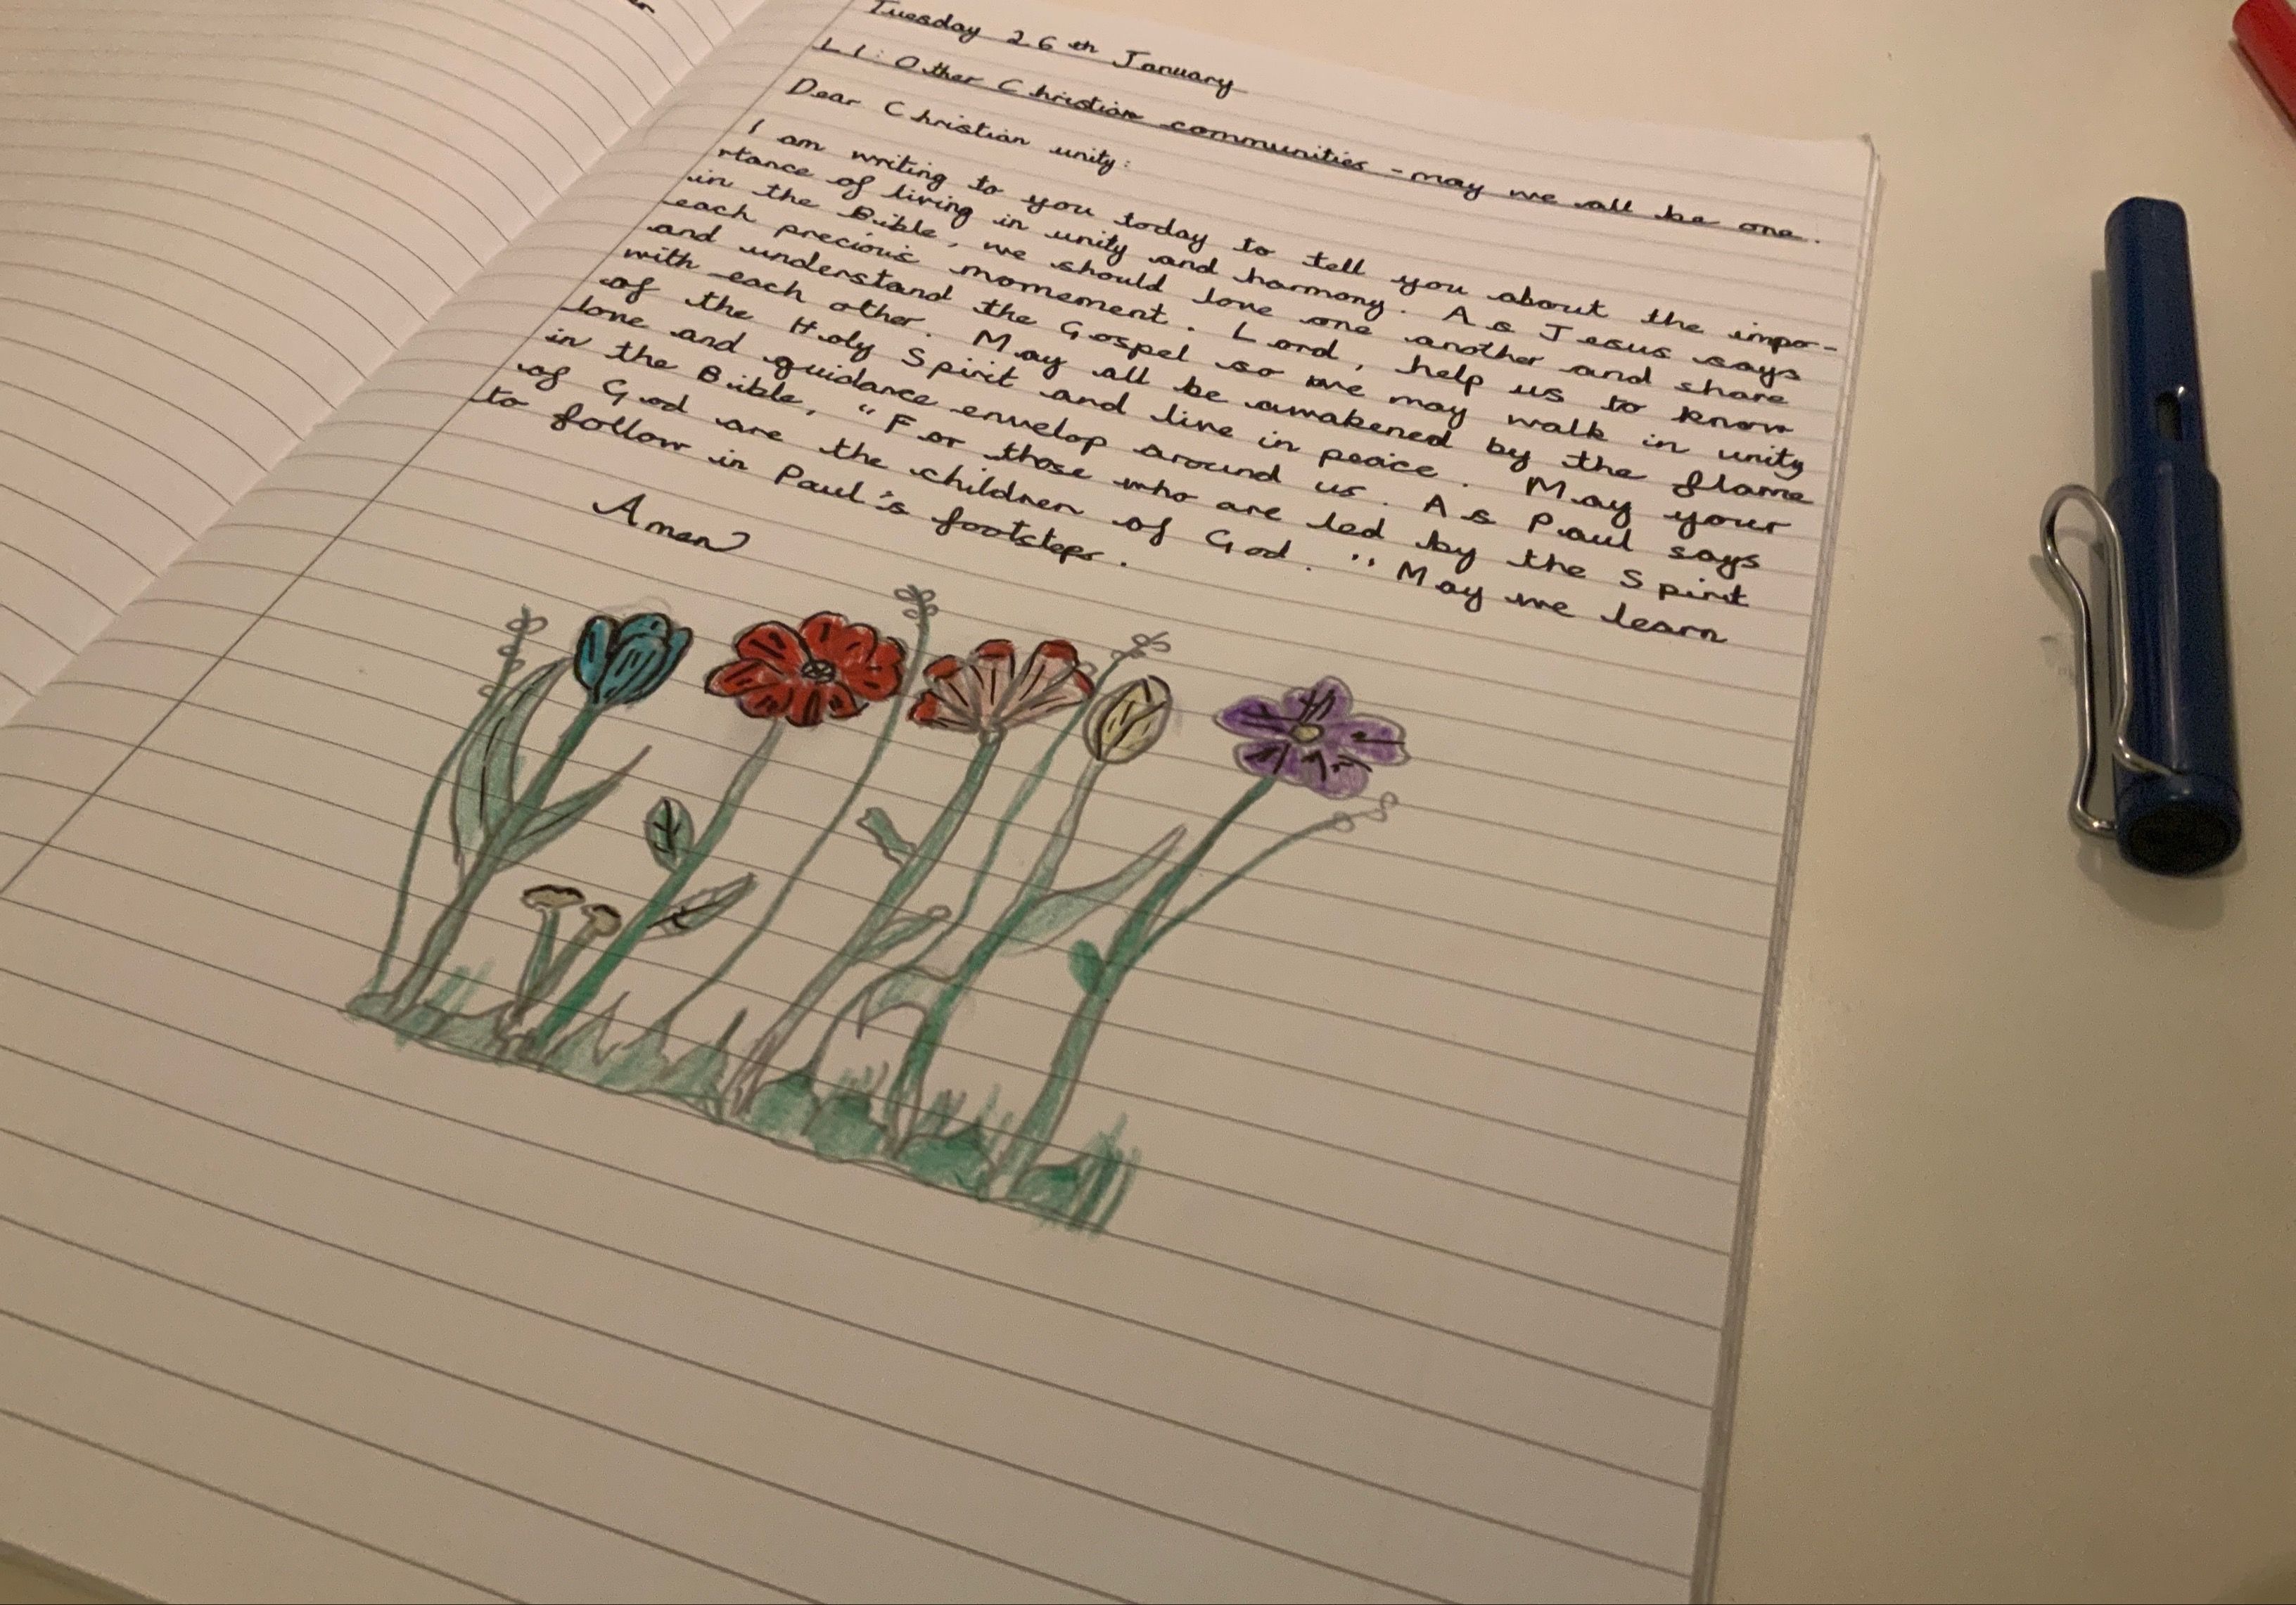 Tuesday 26th January
LI: Other Christian communities - may we all be one.
Dear Christian unity:
I am writing to you today to tell you about the impo-
rtance of living in unity and harmony. As Jesus says
in the Bible, we should love one another and share
each precious momement. Lord, help us to know
and understand the Gospel so we may walk in unity
with each other. May all be awakened by the flame
of the Holy Spirit and live in peace. May your
love and guidance envelop around us. As Paul says
in the Bible, "For those who are led by the Spirit
of God are the children of God." May we learn
to follow in Paul's footsteps.
Amen